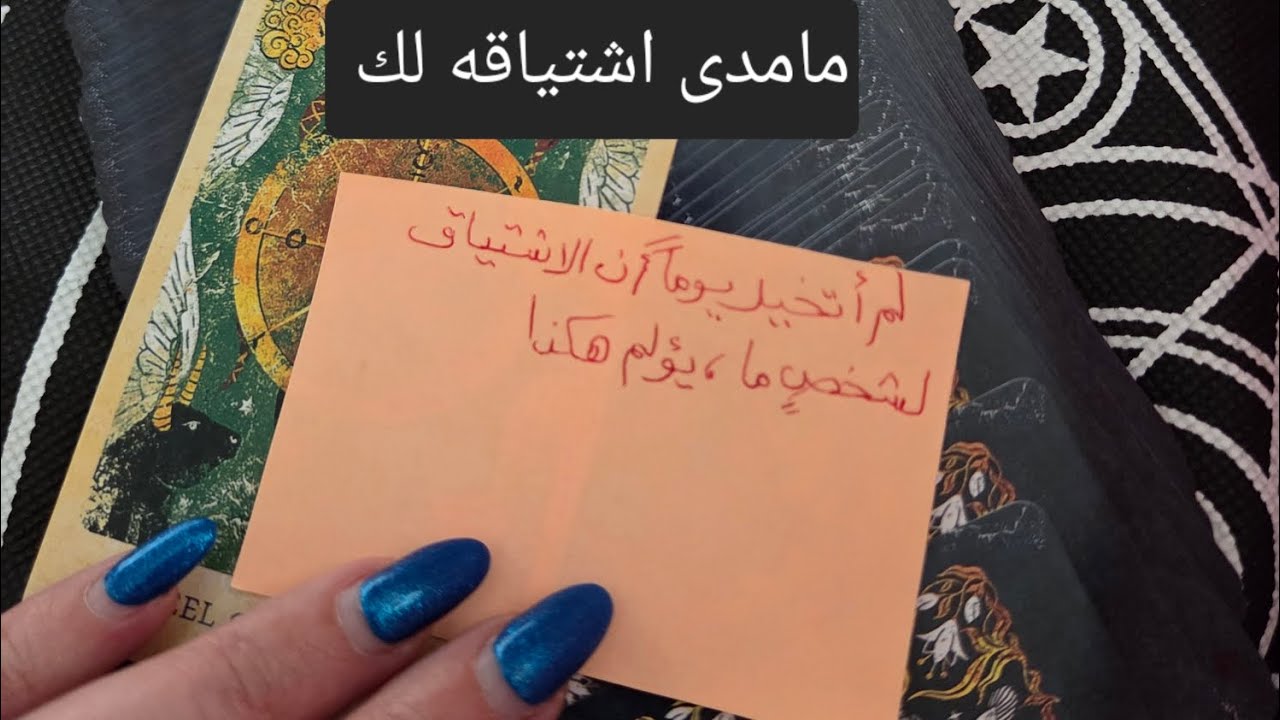 مامدى اشتياقه لك
لم أتخيل يوماً أن الاشتياق
لشخصٍ ما، يؤلم هكذا
EEL